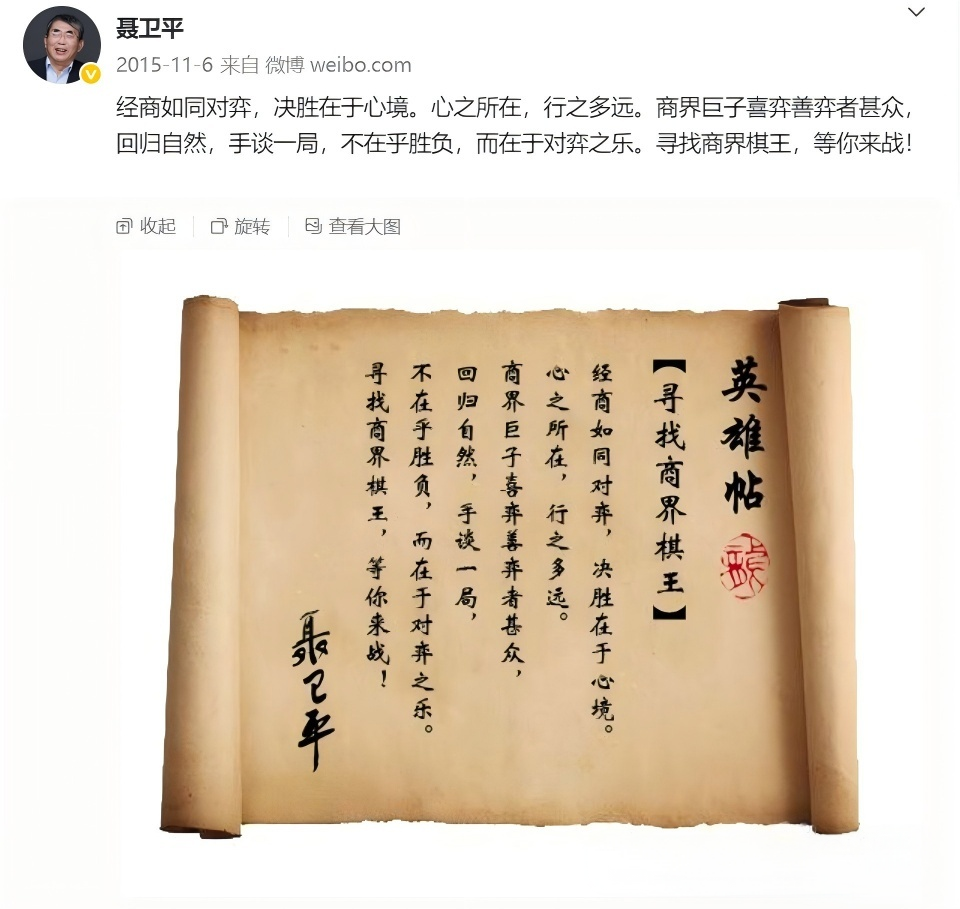 聂卫平
2015-11-6 来自 微博 weibo.com
经商如同对弈，决胜在于心境。心之所在，行之多远。商界巨子喜弈善弈者甚众，
回归自然，手谈一局，不在乎胜负，而在于对弈之乐。寻找商界棋王，等你来战！
收起
旋转
查看大图
英雄帖
【寻找商界棋王】
经商如同对弈，决胜在于心境。
心之所在，行之多远。
商界巨子喜弈善弈者甚众，
回归自然，手谈一局，
不在乎胜负，而在于对弈之乐。
寻找商界棋王，等你来战！
聂卫平